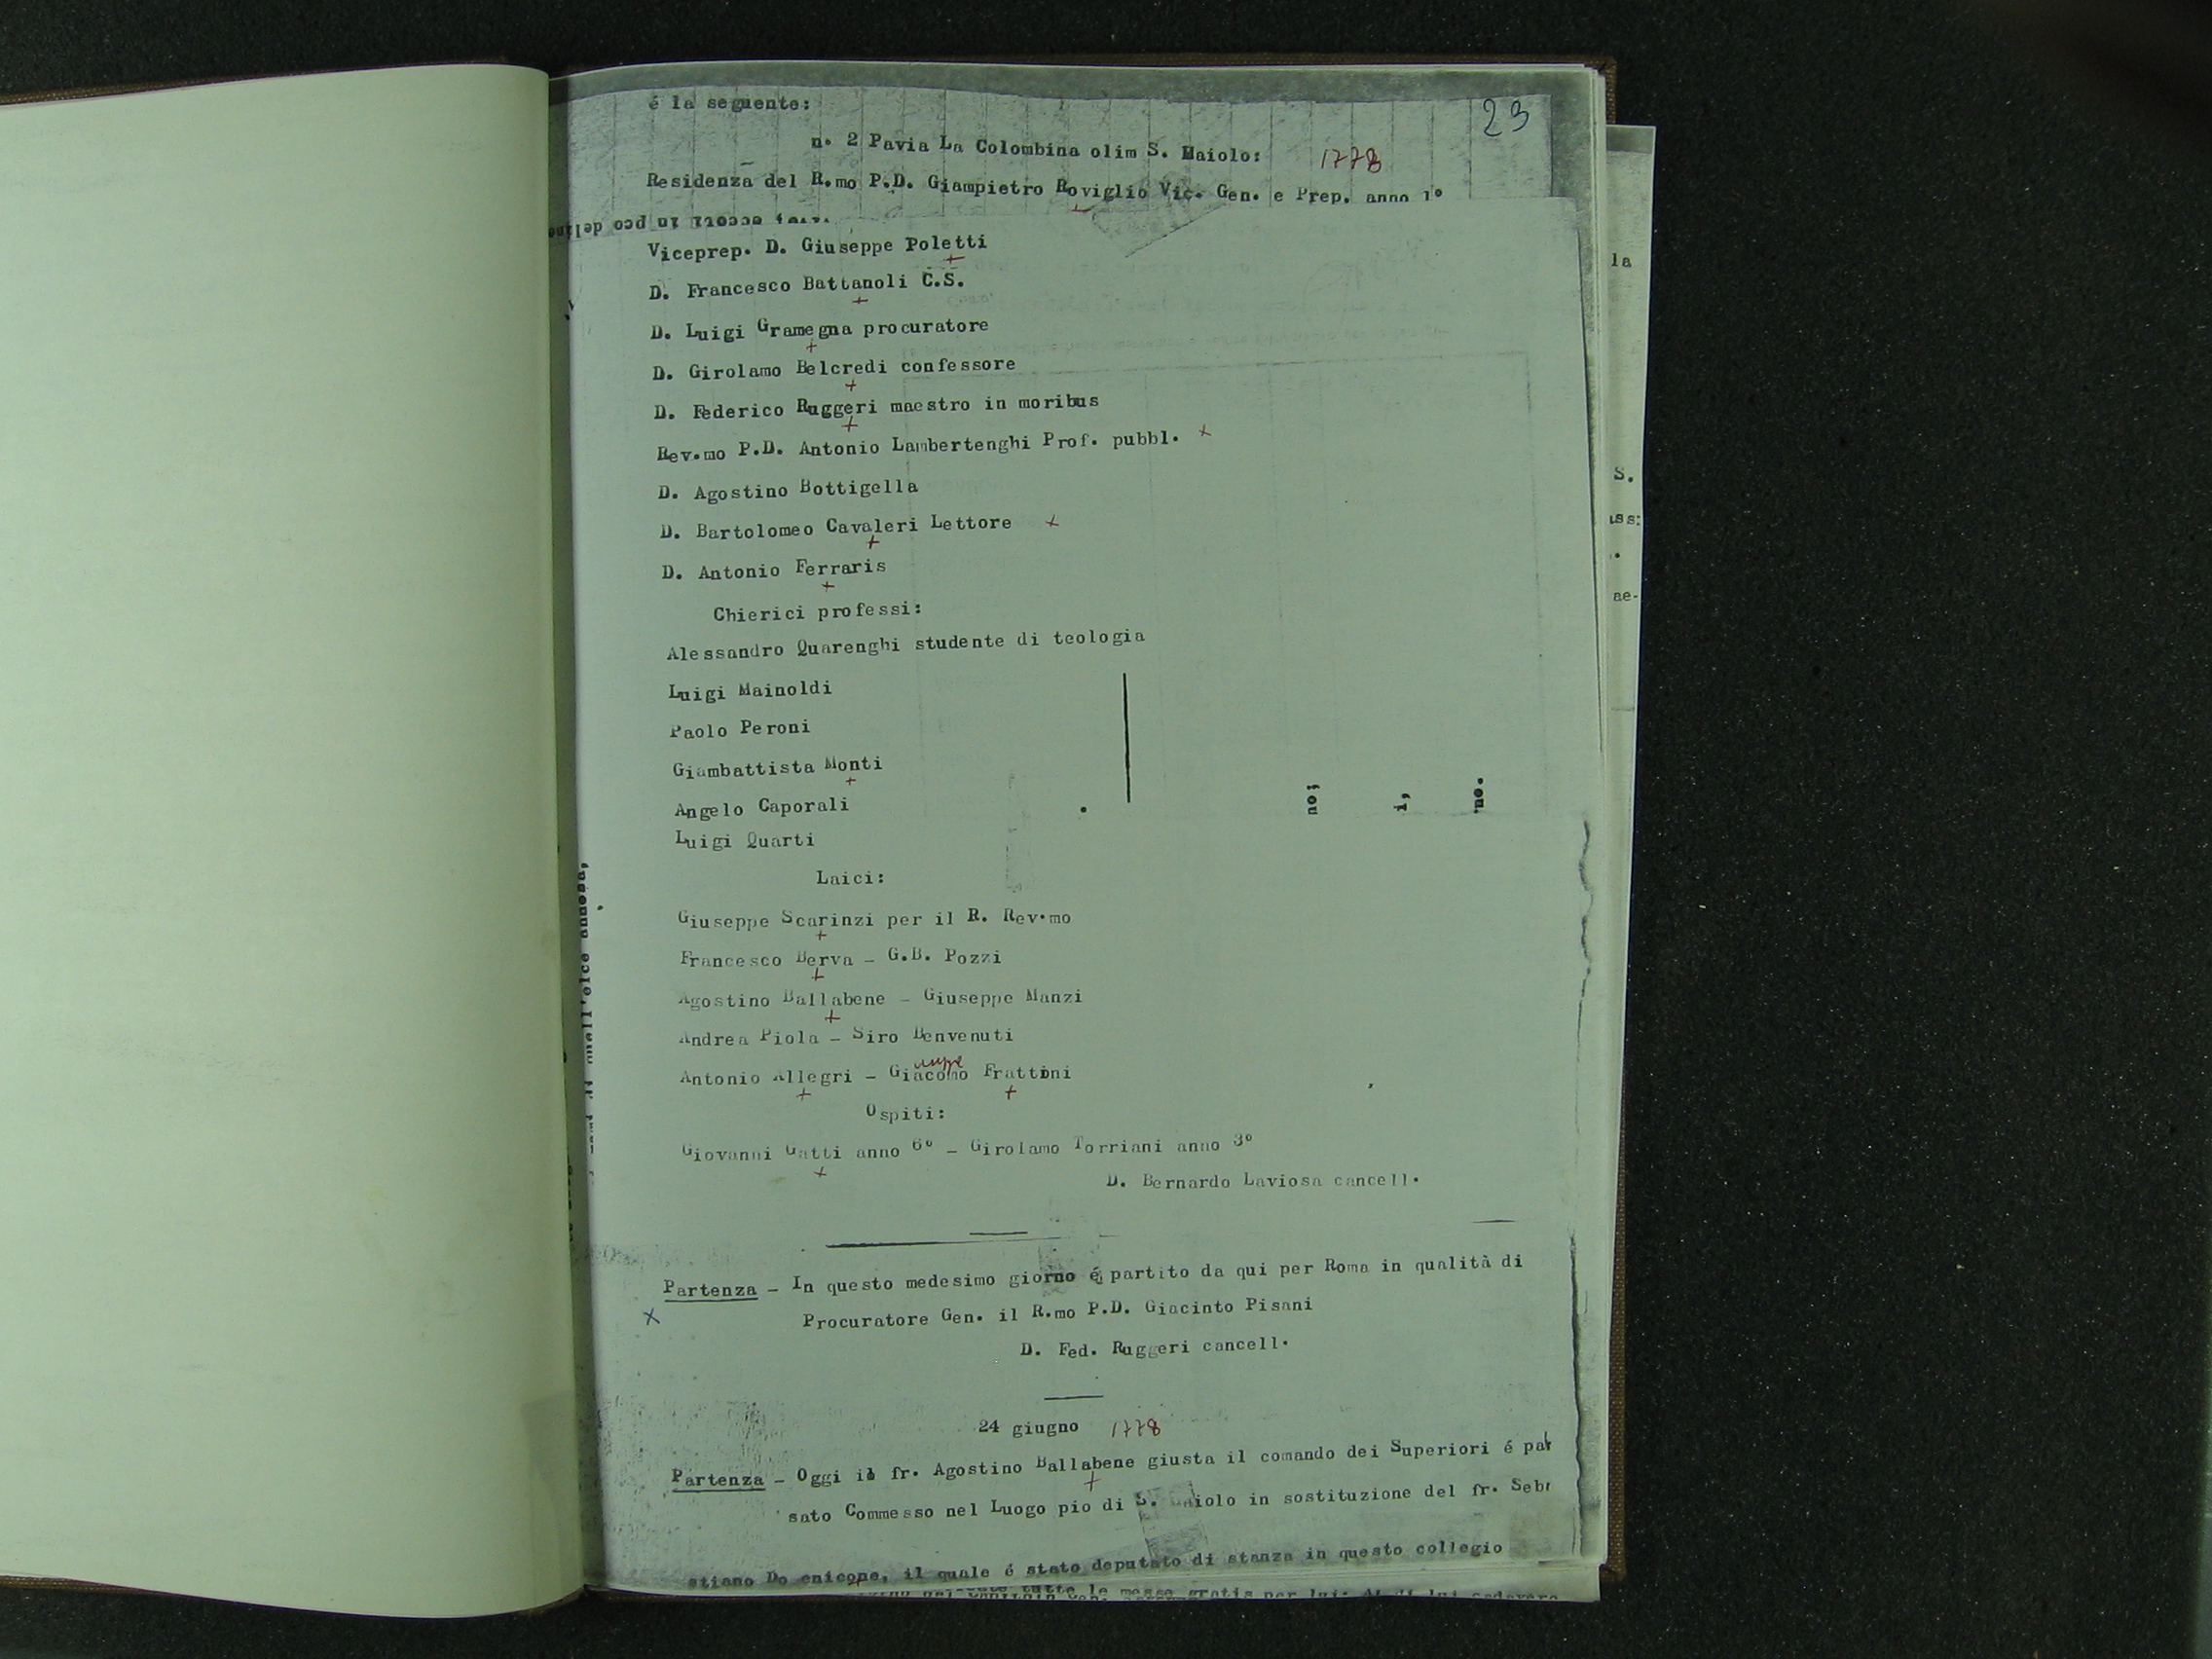 é la seguente:
23
n. 2 Pavia La Colombina olim S. Maiolo: 1778
Residenza del R.mo P.D. Giampietro Roviglio Vic. Gen. e Prep. anno 1º
Viceprep. D. Giuseppe Poletti
D. Francesco Battanoli C.S.
D. Luigi Gramegna procuratore
D. Girolamo Belcredi confessore
D. Federico Ruggeri maestro in moribus
Rev.mo P.D. Antonio Lambertenghi Prof. pubbl. +
D. Agostino Bottigella
D. Bartolomeo Cavaleri Lettore +
D. Antonio Ferraris
Chierici professi:
Alessandro Quarenghi studente di teologia
Luigi Mainoldi
Paolo Peroni
Giambattista Monti
Angelo Caporali
Luigi Quarti
Laici:
Giuseppe Scarinzi per il R. Rev.mo
Francesco Berva - G.B. Pozzi
Agostino Ballabene - Giuseppe Manzi
Andrea Piola - Siro Benvenuti
Antonio Allegri - Giacomo Frattini
Ospiti:
Giovanni Gatti anno 6º - Girolamo Torriani anno 3º
D. Bernardo Laviosa cancell.
Partenza - In questo medesimo giorno é partito da qui per Roma in qualità di
Procuratore Gen. il R.mo P.D. Giacinto Pisani
D. Fed. Ruggeri cancell.
24 giugno 1778
Partenza - Oggi il fr. Agostino Ballabene giusta il comando dei Superiori é pas
sato Commesso nel Luogo pio di S. Maiolo in sostituzione del fr. Seb
stiano Do enicone, il quale é stato deputato di stanza in questo collegio
tutte le messe gratis per lui